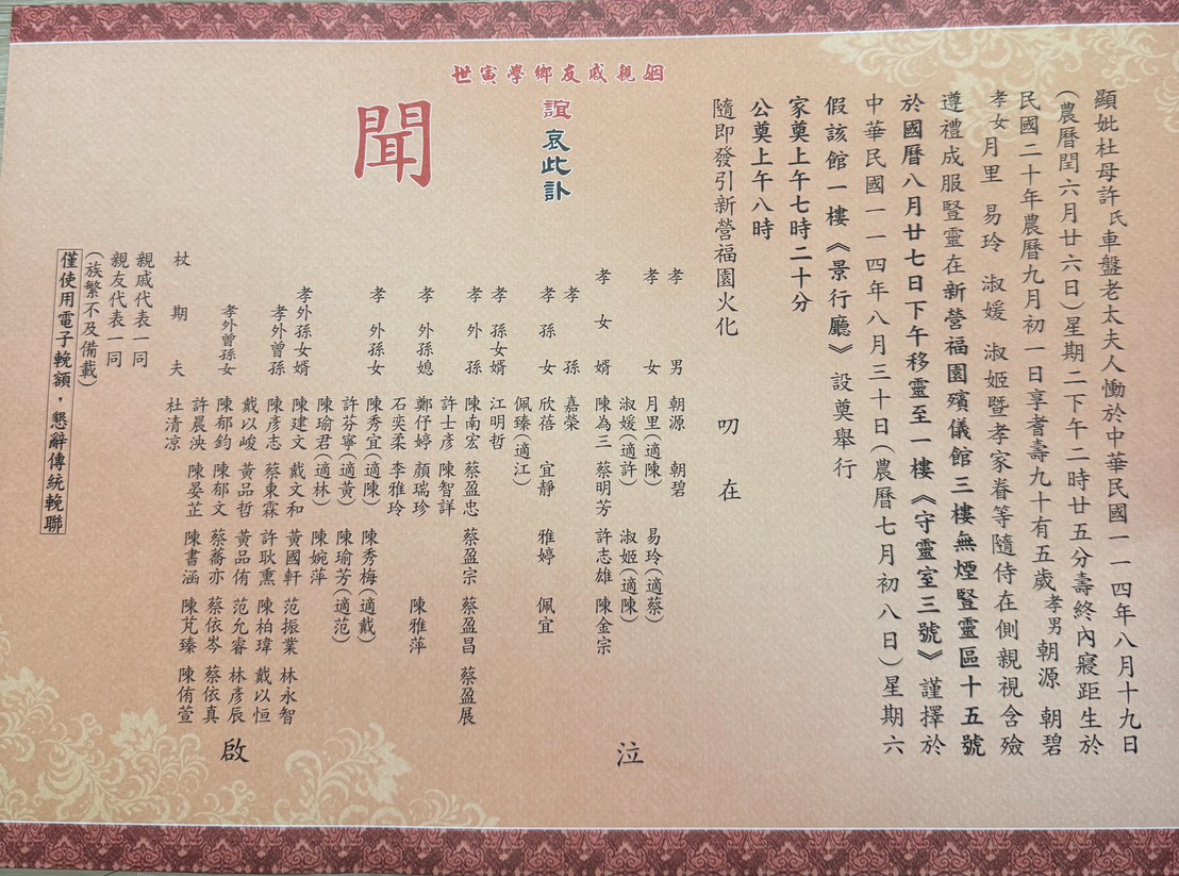 顯妣杜母許氏車盤老太夫人慟於中華民國一一四年八月十九日
(農曆閏六月廿六日)星期二下午二時廿五分壽終內寢距生於
民國二十年農曆九月初一日享耆壽九十有五歲孝男朝源 朝碧
孝女月里 易玲 淑媛 淑姬暨孝家眷等隨侍在側親視含殮
遵禮成服豎靈在新營福園殯儀館三樓無煙豎靈區十五號
於國曆八月廿七日下午移靈至一樓《守靈室三號》謹擇於
中華民國一一四年八月三十日(農曆七月初八日)星期六
假該館一樓《景行廳》設奠舉行
家奠上午七時二十分
公奠上午八時
隨即發引新營福園火化
叨在
姻親戚友鄉學寅世
誼哀此訃
聞
孝男 朝源 朝碧
孝女 月里(適陳) 易玲(適蔡)
淑媛(適許) 淑姬(適陳)
孝女婿 陳為三 蔡明芳 許志雄 陳金宗
孝孫 嘉榮
孝孫女 欣蓓 宜靜 雅婷 佩宜
佩臻(適江)
孝孫女婿 江明哲
孝外孫 陳南宏 蔡盈忠 蔡盈宗 蔡盈昌 蔡盈展
許士彥 陳智詳
孝外孫媳 鄭伃婷 顏瑞珍 陳雅萍
石奕柔 李雅玲
孝外孫女 陳秀宜(適陳) 陳秀梅(適戴)
許芬寧(適黃) 陳瑜芳(適范)
陳瑜君(適林) 陳婉萍
孝外孫女婿 陳建文 戴文和 黃國軒 范振業 林永智
孝外曾孫 陳彥志 蔡東霖 許耿熏 陳柏瑋 戴以恒
戴以峻 黃品哲 黃品侑 范允睿 林彥辰
孝外曾孫女 陳郁鈞 陳郁文 蔡蕎亦 蔡依岑 蔡依真
許晨泱 陳晏芷 陳書涵 陳芃臻 陳侑萱
杖期夫 杜清凉
泣
啟
親戚代表一同
親友代表一同
(族繁不及備載)
僅使用電子輓額，懇辭傳統輓聯